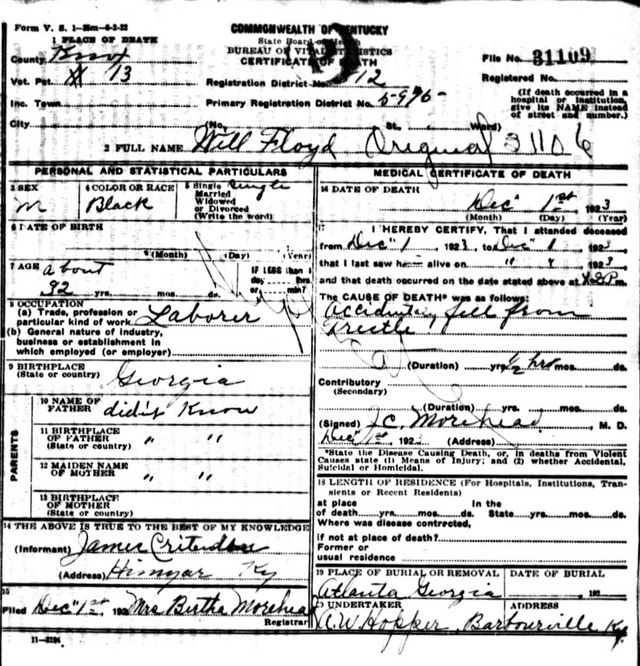 Form V. S. 1-25m-8-3-22
COMMONWEALTH OF KENTUCKY
State Board of Health
BUREAU OF VITAL STATISTICS
CERTIFICATE OF DEATH
1 PLACE OF DEATH
County Knox
Vot. Pct. # 13
Inc. Town
City
Registration District No. 12
Primary Registration District No.
(No. St., Ward)
File No. 31109
Registered No.
(If death occurred in a
hospital or institution,
give its NAME instead
of street and number.)
2 FULL NAME Will Floyd Original 31106
PERSONAL AND STATISTICAL PARTICULARS
3 SEX
M
4 COLOR OR RACE
Black
5 Single Single
Married
Widowed
or Divorced
(Write the word)
6 DATE OF BIRTH
(Month) (Day) (Year)
7 AGE about
32 yrs. mos. ds.
IF LESS than 1
day hrs.
or min.?
8 OCCUPATION
(a) Trade, profession or
particular kind of work Laborer
(b) General nature of industry,
business or establishment in
which employed (or employer)
9 BIRTHPLACE
(State or country) Georgia
PARENTS
10 NAME OF
FATHER didn't Know
11 BIRTHPLACE
OF FATHER " "
(State or country)
12 MAIDEN NAME
OF MOTHER " "
13 BIRTHPLACE
OF MOTHER
(State or country)
14 THE ABOVE IS TRUE TO THE BEST OF MY KNOWLEDGE
(Informant) James
(Address) Ky
15
Filed Dec 1st 192 Mrs Birtha Morehead
Registrar
11-3184
MEDICAL CERTIFICATE OF DEATH
16 DATE OF DEATH
Dec 1st 1923
(Month) (Day) (Year)
17 I HEREBY CERTIFY, That I attended deceased
from Dec 1 1923, to Dec 1 1923
that I last saw h alive on " " 1923
and that death occurred on the date stated above at m.
The CAUSE OF DEATH* was as follows:
fell from
Trestle
(Duration) yrs. ½ hrs mos. ds.
Contributory
(Secondary)
(Duration) yrs. mos. ds.
(Signed) J.C. Morehead, M. D.
Dec 1st 192 (Address)
*State the Disease Causing Death, or, in deaths from Violent
Causes state (1) Means of Injury; and (2) whether Accidental,
Suicidal or Homicidal.
18 LENGTH OF RESIDENCE (For Hospitals, Institutions, Tran-
sients or Recent Residents)
at place In the
of death yrs. mos. ds. State yrs. mos. ds.
Where was disease contracted,
if not at place of death?
Former or
usual residence
19 PLACE OF BURIAL OR REMOVAL
Atlanta Georgia
DATE OF BURIAL
192
20 UNDERTAKER
A.W Hopper
ADDRESS
Barbourville Ky